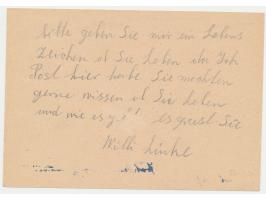 bitte geben Sie mir ein Lebens
Zeichen ob Sie leben ihr Ich
Post hier habe Sie mechten
gerne wissen ob Sie leben
und wie es g. es grust Sie
Willi Linke